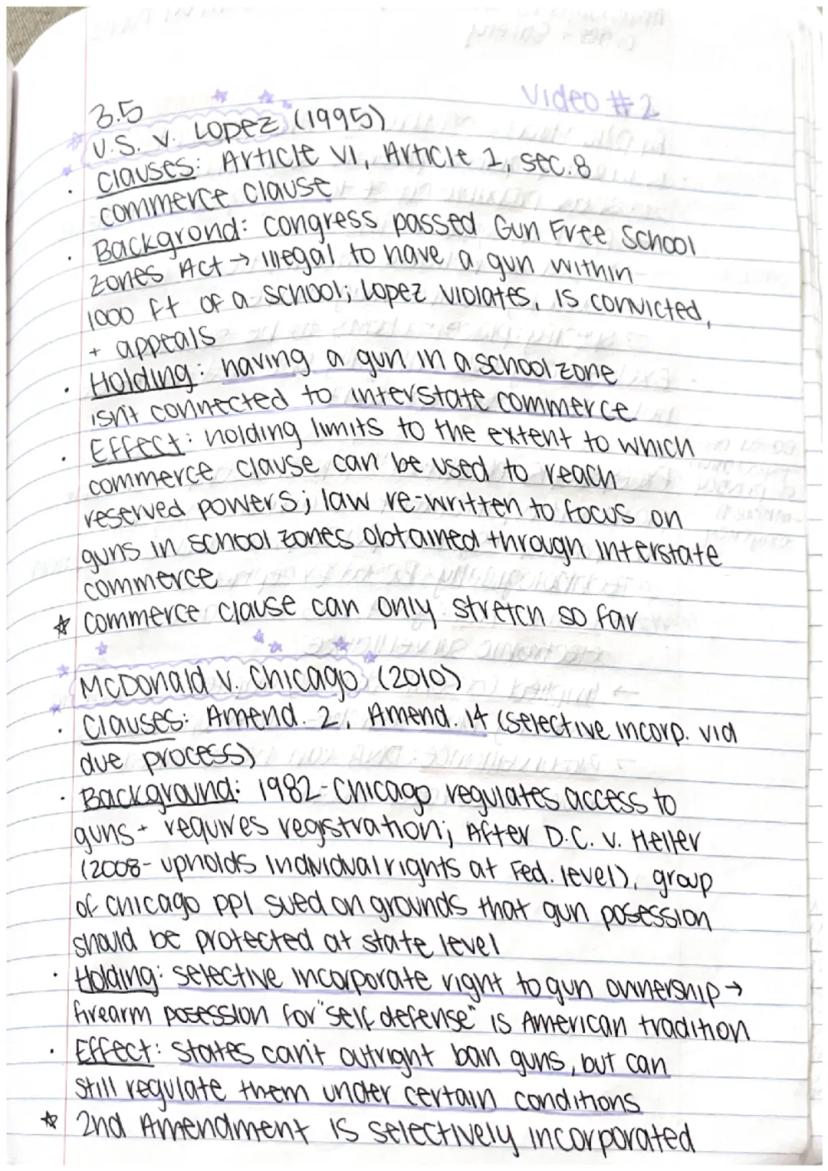 Video #2
3.5
U.S. v. Lopez (1995)
· Clauses: Article VI, Article 1, sec. 8
commerce clause
· Backgrond: congress passed Gun Free School
Zones Act → illegal to have a gun within
1000 ft of a school; Lopez violates, is convicted,
+ appeals
· Holding: having a gun in a school zone
isn't connected to interstate commerce
· Effect: holding limits to the extent to which
commerce clause can be used to reach
reserved powers; law re-written to focus on
guns in school zones obtained through interstate
commerce
☆ commerce clause can only stretch so far
McDonald v. Chicago (2010)
· Clauses: Amend. 2, Amend. 14 (selective incorp. via
due process)
· Background: 1982-Chicago regulates access to
guns + requires registration; After D.C. v. Heller
(2008- upholds individual rights at Fed. level), group
of Chicago ppl sued on grounds that gun posession
should be protected at state level
· Holding: selective incorporate right to gun ownership →
firearm posession for "self defense" is American tradition
· Effect: states can't outright ban guns, but can
still regulate them under certain conditions
☆ 2nd Amendment is selectively incorporated